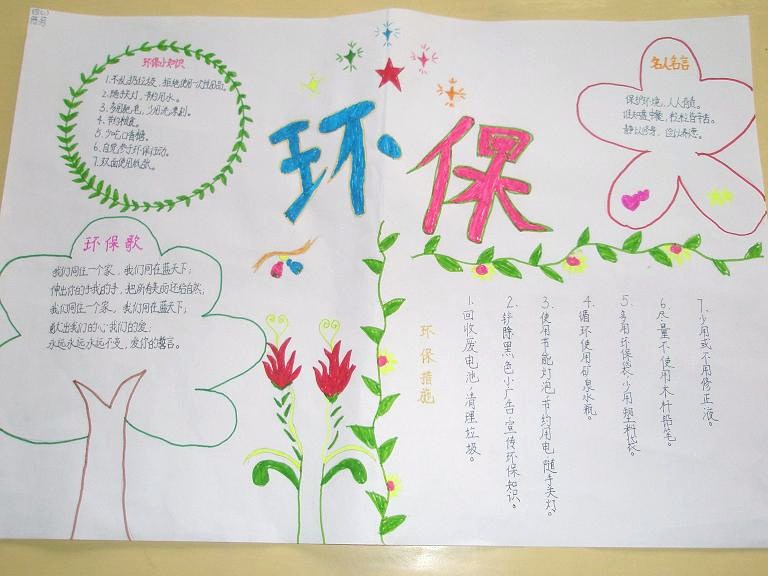 四(4)
环保小知识
1.不乱扔垃圾，拒绝使用一次性用品。
2.随手关灯，节约用水。
3.多用肥皂，少用洗涤剂。
4.节约粮食。
5.少吃口香糖。
6.自觉参于环保行动。
7.双面使用纸张。
环保
名人名言
保护环境，人人有责。
谁知盘中餐，粒粒皆辛苦。
静以修身，俭以养德。
环保歌
我们同住一个家，我们同在蓝天下；
伸出你的手我的手，把所有美丽还给自然；
我们同住一个家，我们同在蓝天下；
献出我们的心我们的爱；
永远永远永远不变，爱你的誓言。
环保措施
1.回收废电池，清理垃圾。
2.排除黑色小广告，宣传环保知识。
3.使用节能灯泡，节约用电，随手关灯。
4.循环使用矿泉水瓶。
5.多用环保袋，少用塑料袋。
6.尽量不使用木杆铅笔。
7.少用或不用修正液。